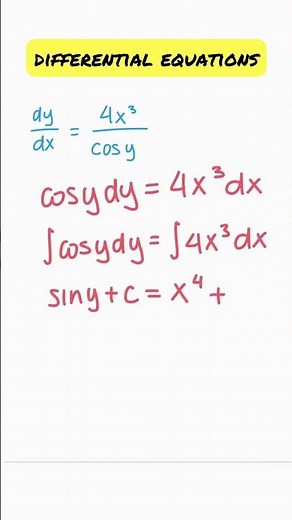 DIFFERENTIAL EQUATIONS
dy/dx = 4x³/cosy
cosydy = 4x³dx
∫cosydy = ∫4x³dx
siny+c = x⁴+